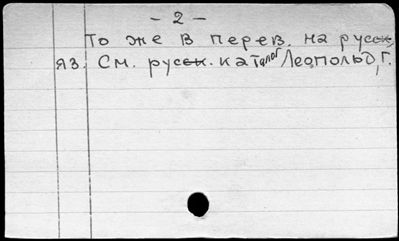 - 2 -
То же в перев. на русск.
яз. См. русск. каталог Леопольд, Г.